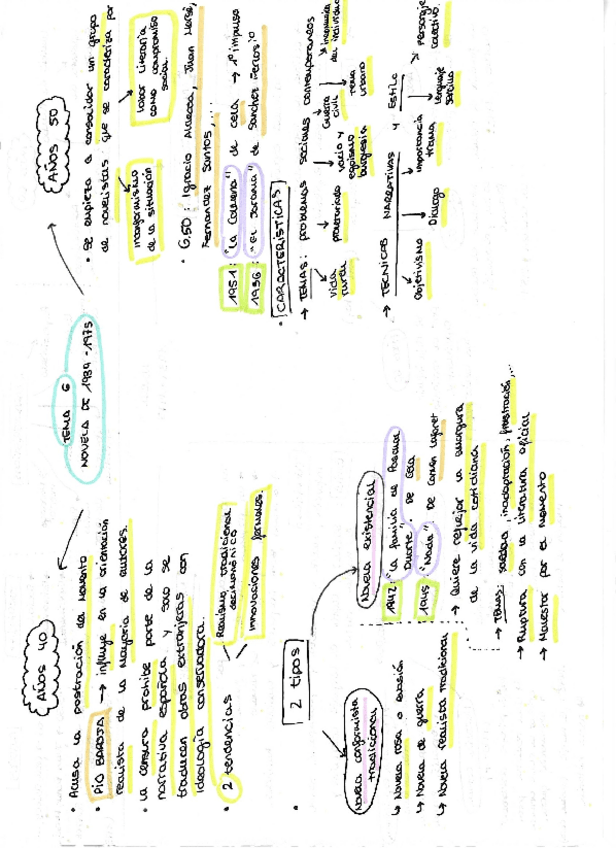 TEMA 6
NOVELA DE 1939-1975
AÑOS 40
• Acusa la postración del Momento
PÍO BAROJA → influye en la orientación
realista de la Mayoría de autores.
• La censura prohibe parte de la
narrativa española y solo se
traducen obras extranjeras con
ideología conservadora.
• 2 tendencias
Realismo tradicional
decimonónico
innovaciones formales.
• 2 tipos
Novela conformista
tradicional
↳ Novela rosa o evasión
↳ Novela de guerra
↳ Novela realista tradicional
Novela existencial
1942: "la familia de Pascual
Duarte" de Cela
1945: "Nada" de Carmen Laforet
→ Quiere reflejar la amargura
de la vida cotidiana
→ TEMAS: soledad, inadaptación, frustración,...
→ Ruptura con la literatura oficial
→ Malestar por el momento
AÑOS 50
• Se empieza a consolidar un grupo
de novelistas que se caracteriza por
inconformismo
de la situación
labor literaria
como compromiso
social.
• G.50: Ignacio Aldecoa, Juan Marsé,
Fernandez Santos,...
1951: "La Colmena" de Cela → 1º impulso
1956: "El Jarama" de Sanchez Ferlosio
• CARACTERÍSTICAS
→ TEMAS: problemas sociales contemporaneos
vida
rural
proletariado
vacío y
egoísmo
burguesía
Guerra
civil
tema
urbano
del individuo
→ TÉCNICAS NARRATIVAS y Estilo
Objetivismo
Diálogo
importancia
trama
lenguaje
sencillo
personaje
colectivo.